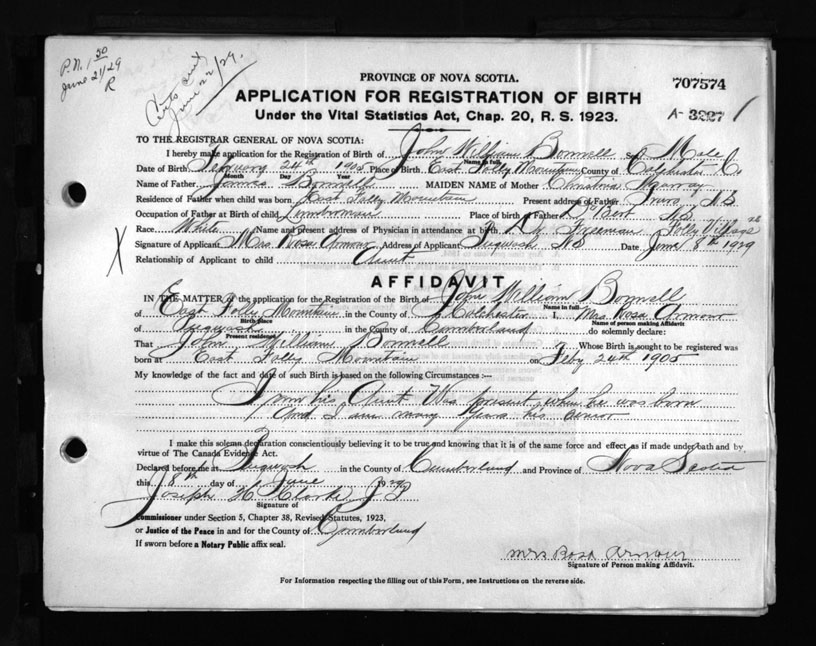 P.N. 1 50
June 21/29
R
June 22/29.
PROVINCE OF NOVA SCOTIA.
707574
APPLICATION FOR REGISTRATION OF BIRTH
A-3227 /
Under the Vital Statistics Act, Chap. 20, R. S. 1923.
TO THE REGISTRAR GENERAL OF NOVA SCOTIA:
I hereby make application for the Registration of Birth of John William Bonnell Male
Name in full
Date of Birth February 24th 1905 Place of Birth East Folly Mountain County of Colchester Co
Month Day Year
Name of Father James Bonnell MAIDEN NAME of Mother Christina
Residence of Father when child was born East Folly Mountain Present address of Father Truro N.S
Occupation of Father at Birth of child Lumberman Place of birth of Father DeBert N.S.
Race White Name and present address of Physician in attendance at birth Freeman Folly Village
Signature of Applicant Mrs Rosa Armour Address of Applicant Pugwash NS Date June 8th 1929
X
Relationship of Applicant to child Aunt
AFFIDAVIT
IN THE MATTER of the application for the Registration of the Birth of John William Bonnell
Name in full
of East Folly Mountain in the County of Colchester I, Mrs Rosa Armour
Birth Place
Name of person making Affidavit
of Pugwash in the County of Cumberland do solemnly declare:
Present residence
That John William Bonnell Whose Birth is sought to be registered was
born at East Folly Mountain on Feby 24th 1905
My knowledge of the fact and date of such Birth is based on the following Circumstances:—
I am his Aunt Was present when he was born
And I am many years his senior
I make this solemn declaration conscientiously believing it to be true and knowing that it is of the same force and effect as if made under oath and by
virtue of The Canada Evidence Act.
Declared before me at Pugwash in the County of Cumberland and Province of Nova Scotia
this 8th day of June 1929
Joseph H. Clarke J P
Signature of
Commissioner under Section 5, Chapter 38, Revised Statutes, 1923,
or Justice of the Peace in and for the County of Cumberland
If sworn before a Notary Public affix seal.
Mrs Rosa Armour
Signature of Person making Affidavit.
For Information respecting the filling out of this Form, see Instructions on the reverse side.